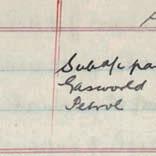 Subs a/c pa
Gasworld
Petrol